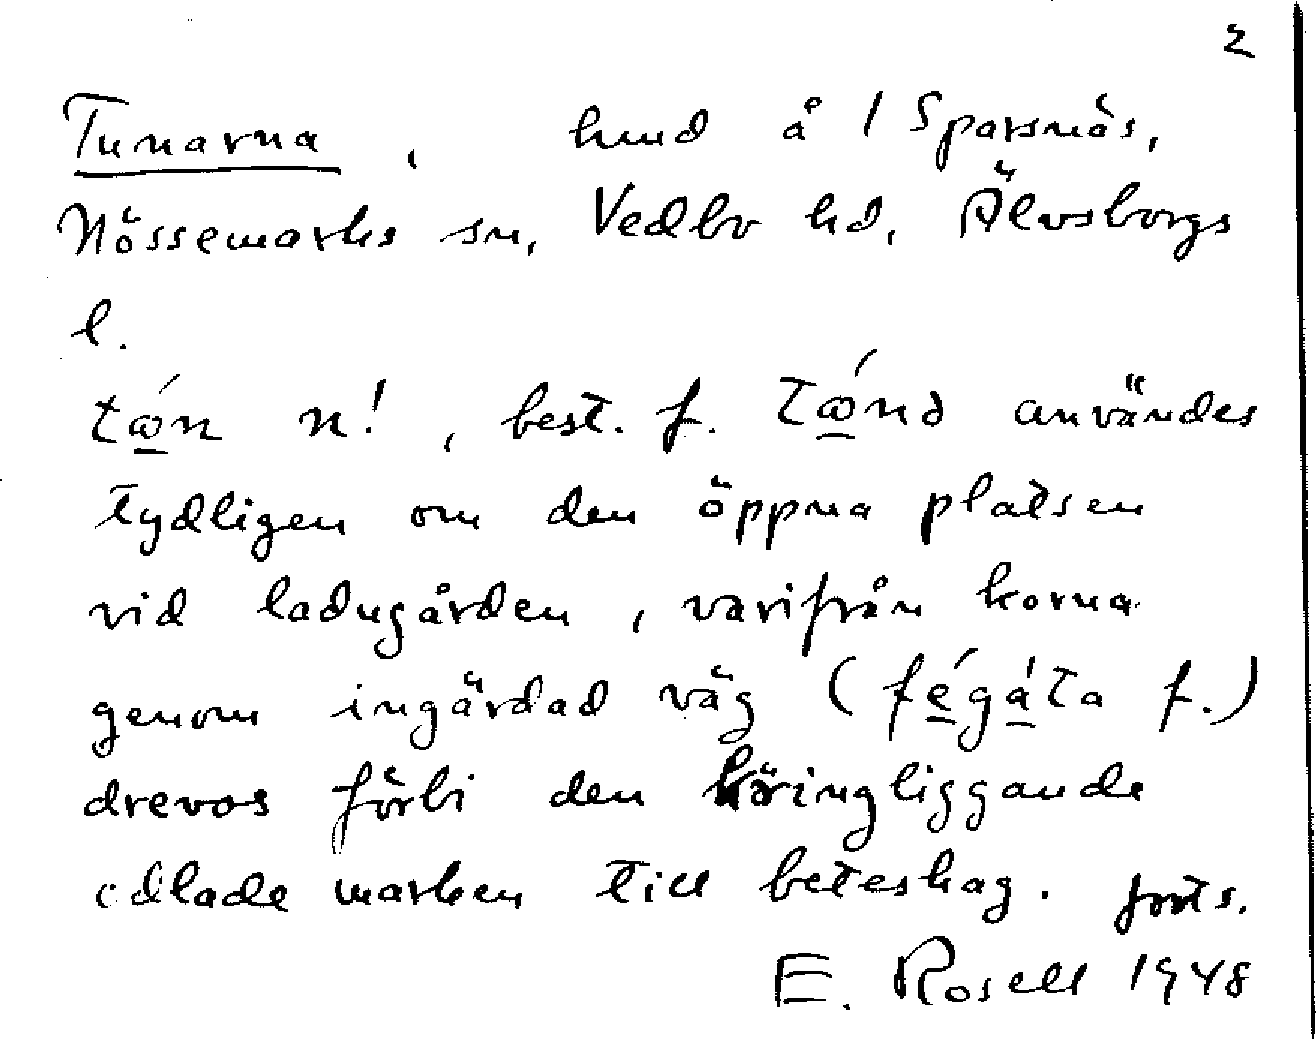 2
Tunarna, hmd å 1 Sparsnäs,
Nössemarks sn, Vedbo hd, Älvsborgs
l.
tǿn n!, best. f. tǿnə användes
tydligen om den öppna platsen
vid ladugården, varifrån korna
genom ingärdad väg (fégáta f.)
drevos förbi den kringliggande
odlade marken till beteshag. forts.
E. Rosell 1948